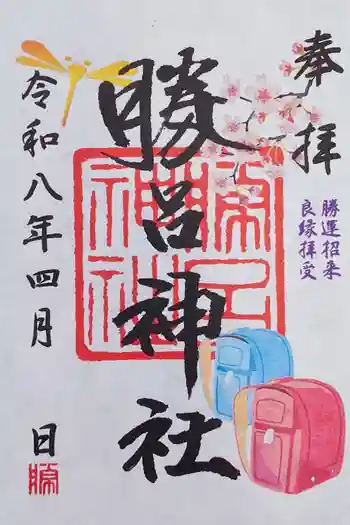 奉拝
勝運招来
良縁拝受
勝呂神社
令和八年四月 日
勝呂神社